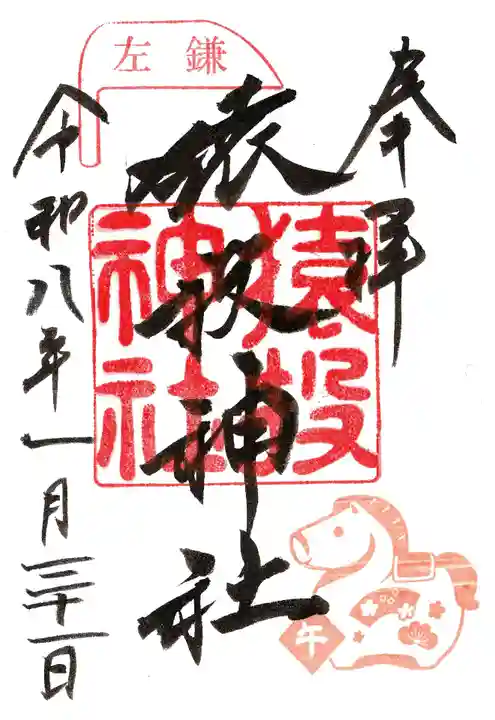 奉拝
猿投神社
猿投神社
左鎌
令和八年一月三十一日
午